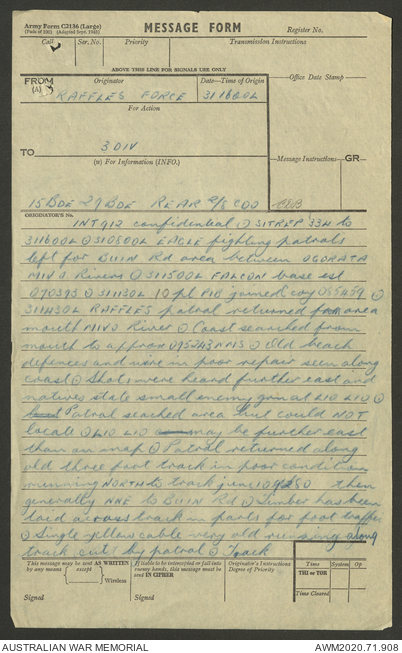 Army Form C2136 (Large)
(Pads of 100) (Adapted Sept. 1943)
MESSAGE FORM
Register No.
Call
Ser. No.
Priority
Transmission Instructions
ABOVE THIS LINE FOR SIGNALS USE ONLY
FROM
(A)
Originator
Date—Time of Origin
Office Date Stamp
RAFFLES FORCE 311600L
For Action
TO
3 DIV
(W) For Information (INFO.)
Message Instructions
GR
15 BDE 29 BDE REAR 2/8 CDO
ORIGINATOR'S No.
INT 912 confidential ⊙ SITREP 334 to
311600L ⊙ 310800L EAGLE fighting patrols
left for BUIN Rd area between OGORATA
MIVO Rivers ⊙ 311500L FALCON base est
090393 ⊙ 311130L 10 pl PIB joined coy ⊙
311430L RAFFLES patrol returned from area
mouth MIVO River ⊙ Coast searched from
mouth to approx 095243 ⊙ Old beach
defences and wire in poor repair seen along
coast ⊙ Shots were heard further east and
natives state small enemy gun at LIO LIO ⊙
Patrol seached area but could NOT
locate ⊙ LIO LIO may be further east
than on map ⊙ Patrol returned along
old three foot track in poor condition
running NORTH to track junc then
generally NNE to BUIN Rd ⊙ Timber has been
laid across track in parts for foot traffic
⊙ Single yellow cable very old running along
track cut by patrol ⊙ Track
This message may be sent AS WRITTEN
by any means except
Wireless
If liable to be intercepted or fall into
enemy hands, this message must be
sent IN CIPHER
Originator's Instructions
Degree of Priority
Time
System
Op
THI or TOR
Time Cleared
Signed
Signed
AUSTRALIAN WAR MEMORIAL
AWM2020.71.908